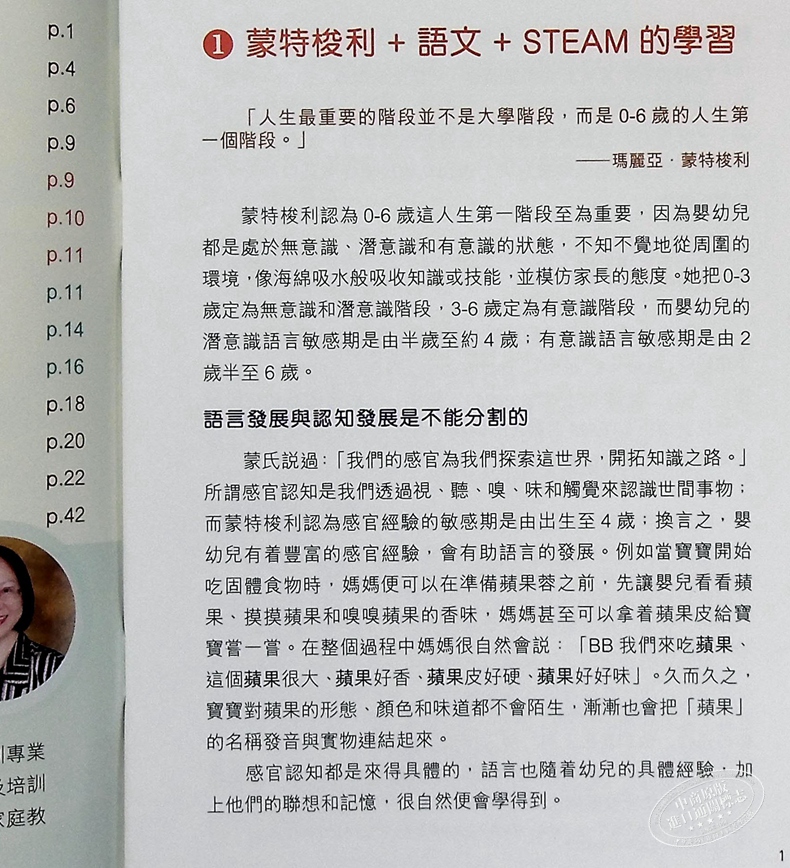 p.1
p.4
p.6
p.9
p.9
p.10
p.11
p.11
p.14
p.16
p.18
p.20
p.22
p.42
專業
培訓
家庭教
1 蒙特梭利 + 語文 + STEAM 的學習
「人生最重要的階段並不是大學階段，而是 0-6 歲的人生第
一個階段。」
——瑪麗亞．蒙特梭利
蒙特梭利認為 0-6 歲這人生第一階段至為重要，因為嬰幼兒
都是處於無意識、潛意識和有意識的狀態，不知不覺地從周圍的
環境，像海綿吸水般吸收知識或技能，並模仿家長的態度。她把 0-3
歲定為無意識和潛意識階段，3-6 歲定為有意識階段，而嬰幼兒的
潛意識語言敏感期是由半歲至約 4 歲；有意識語言敏感期是由 2
歲半至 6 歲。
語言發展與認知發展是不能分割的
蒙氏説過：「我們的感官為我們探索這世界，開拓知識之路。」
所謂感官認知是我們透過視、聽、嗅、味和觸覺來認識世間事物；
而蒙特梭利認為感官經驗的敏感期是由出生至 4 歲；換言之，嬰
幼兒有着豐富的感官經驗，會有助語言的發展。例如當寶寶開始
吃固體食物時，媽媽便可以在準備蘋果蓉之前，先讓嬰兒看看蘋
果、摸摸蘋果和嗅嗅蘋果的香味，媽媽甚至可以拿着蘋果皮給寶
寶嘗一嘗。在整個過程中媽媽很自然會説：「BB 我們來吃蘋果、
這個蘋果很大、蘋果好香、蘋果皮好硬、蘋果好好味」。久而久之，
寶寶對蘋果的形態、顏色和味道都不會陌生，漸漸也會把「蘋果」
的名稱發音與實物連結起來。
感官認知都是來得具體的，語言也隨着幼兒的具體經驗，加
上他們的聯想和記憶，很自然便會學得到。
中商原版
1